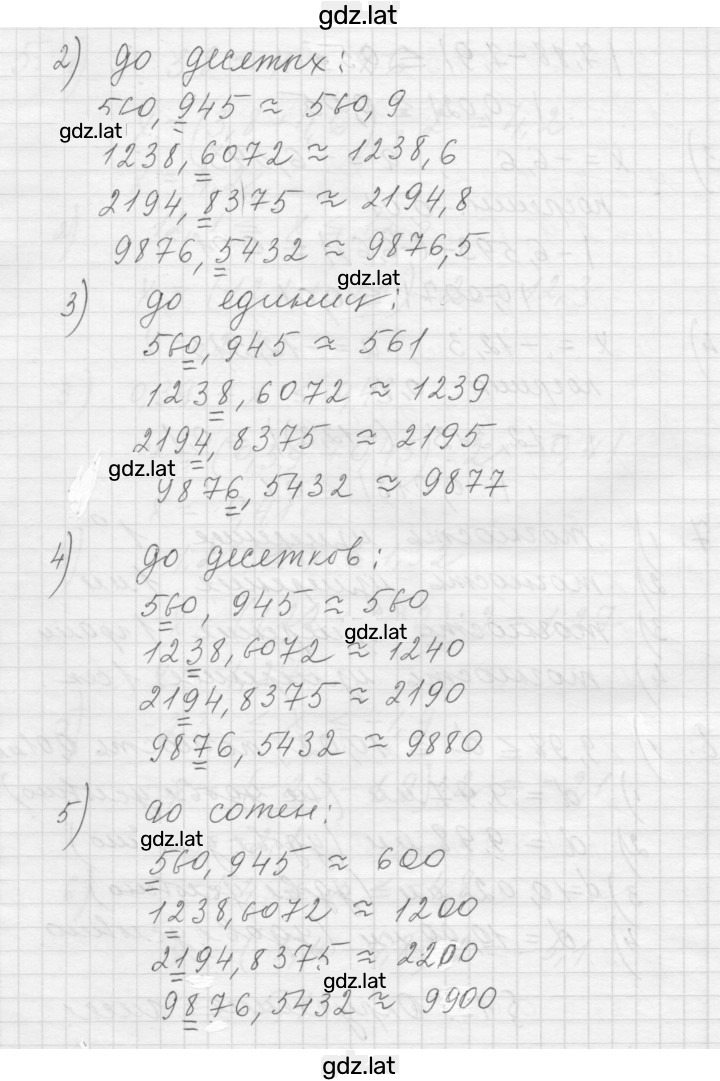 gdz.lat
2) до десятых:
560,945 ≈ 560,9
gdz.lat
1238,6072 ≈ 1238,6
2194,8375 ≈ 2194,8
9876,5432 ≈ 9876,5
gdz.lat
3) до единиц:
560,945 ≈ 561
1238,6072 ≈ 1239
2194,8375 ≈ 2195
gdz.lat
9876,5432 ≈ 9877
4) до десятков:
560,945 ≈ 560
gdz.lat
1238,6072 ≈ 1240
2194,8375 ≈ 2190
9876,5432 ≈ 9880
5) до сотен:
gdz.lat
560,945 ≈ 600
1238,6072 ≈ 1200
2194,8375 ≈ 2200
gdz.lat
9876,5432 ≈ 9900
gdz.lat